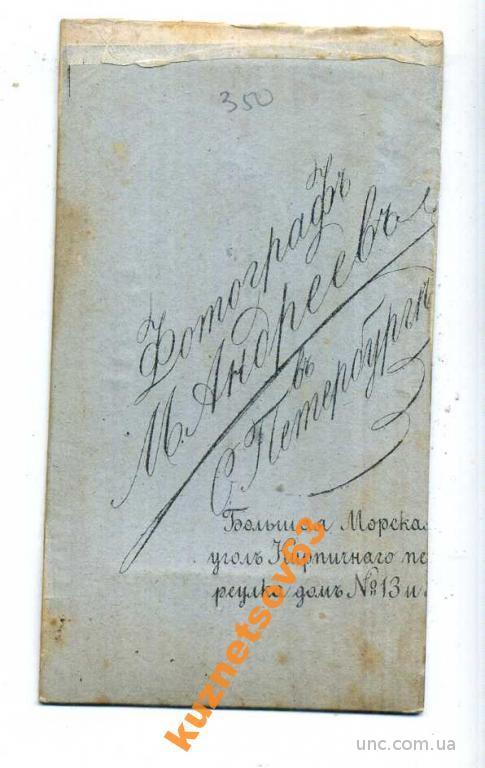 350
Фотографъ
М. Андреевъ
въ
С. Петербургѣ
Большая Морская
уголъ Кирпичнаго пе
реулка домъ №13 и
kuznetsov63
unc.com.ua